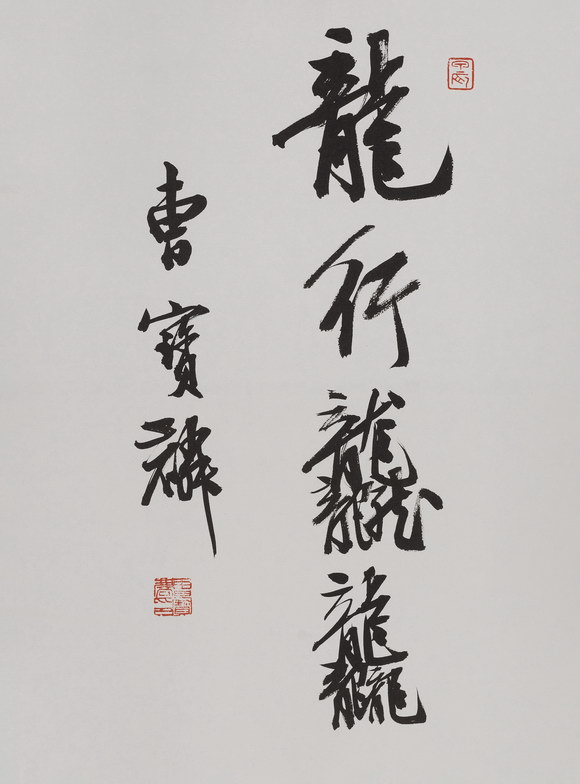 龍行龘龘
曹寶麟